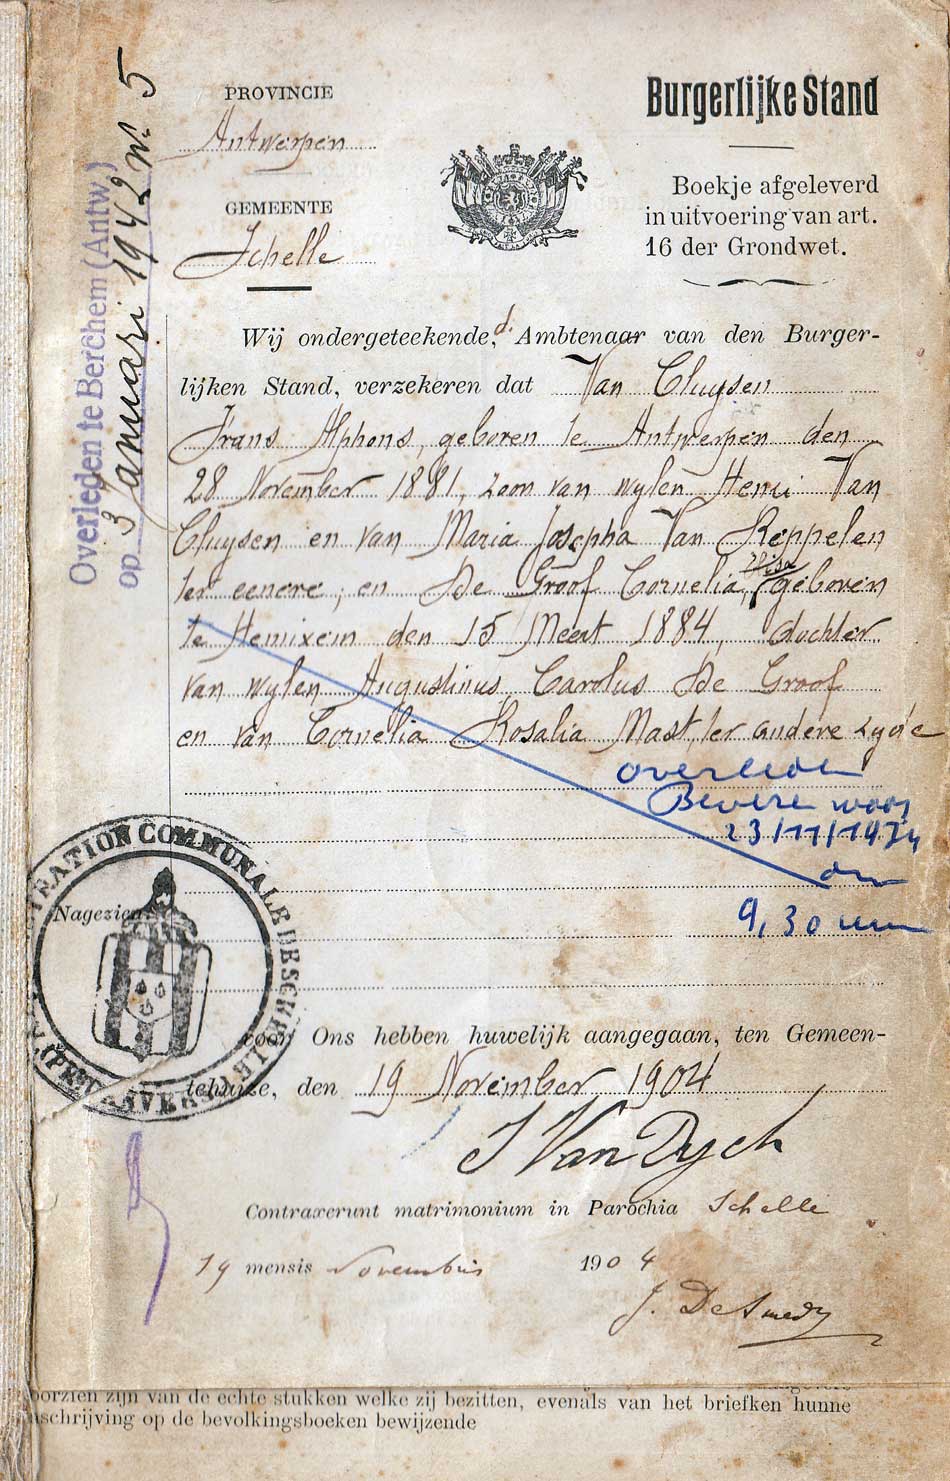 PROVINCIE
Antwerpen
GEMEENTE
Schelle
Burgerlijke Stand
Boekje afgeleverd
in uitvoering van art.
16 der Grondwet.
Overleden te Berchem (Antw.)
op 3 Januari 1942 N: 5
Wij ondergeteekende, d. Ambtenaar van den Burger-
lijken Stand, verzekeren dat Van Cluysen
Frans Alphons, geboren te Antwerpen den
28 November 1881, zoon van wylen Henri Van
Cluysen en van Maria Josepha Van Keppelen
ter eenere, en De Groof Cornelia, geboren
te Hemixem den 15 Meert 1884, dochter
van wylen Augustinus Carolus De Groof
en van Cornelia Rosalia Mast, ter andere zyde
overleden
Bevere waas
23/11/1974
om
9,30 uur
ADMINISTRATION COMMUNALE DE SCHELLE (PCE D'ANVERS)
Nagezien
voor Ons hebben huwelijk aangegaan, ten Gemeen-
tehuize, den 19 November 1904
J Van Dyck
Contraxerunt matrimonium in Parochia Schelle
19 mensis Novembris 1904
J. De Smedt
voorzien zijn van de echte stukken welke zij bezitten, evenals van het briefken hunne
inschrijving op de bevolkingsboeken bewijzende